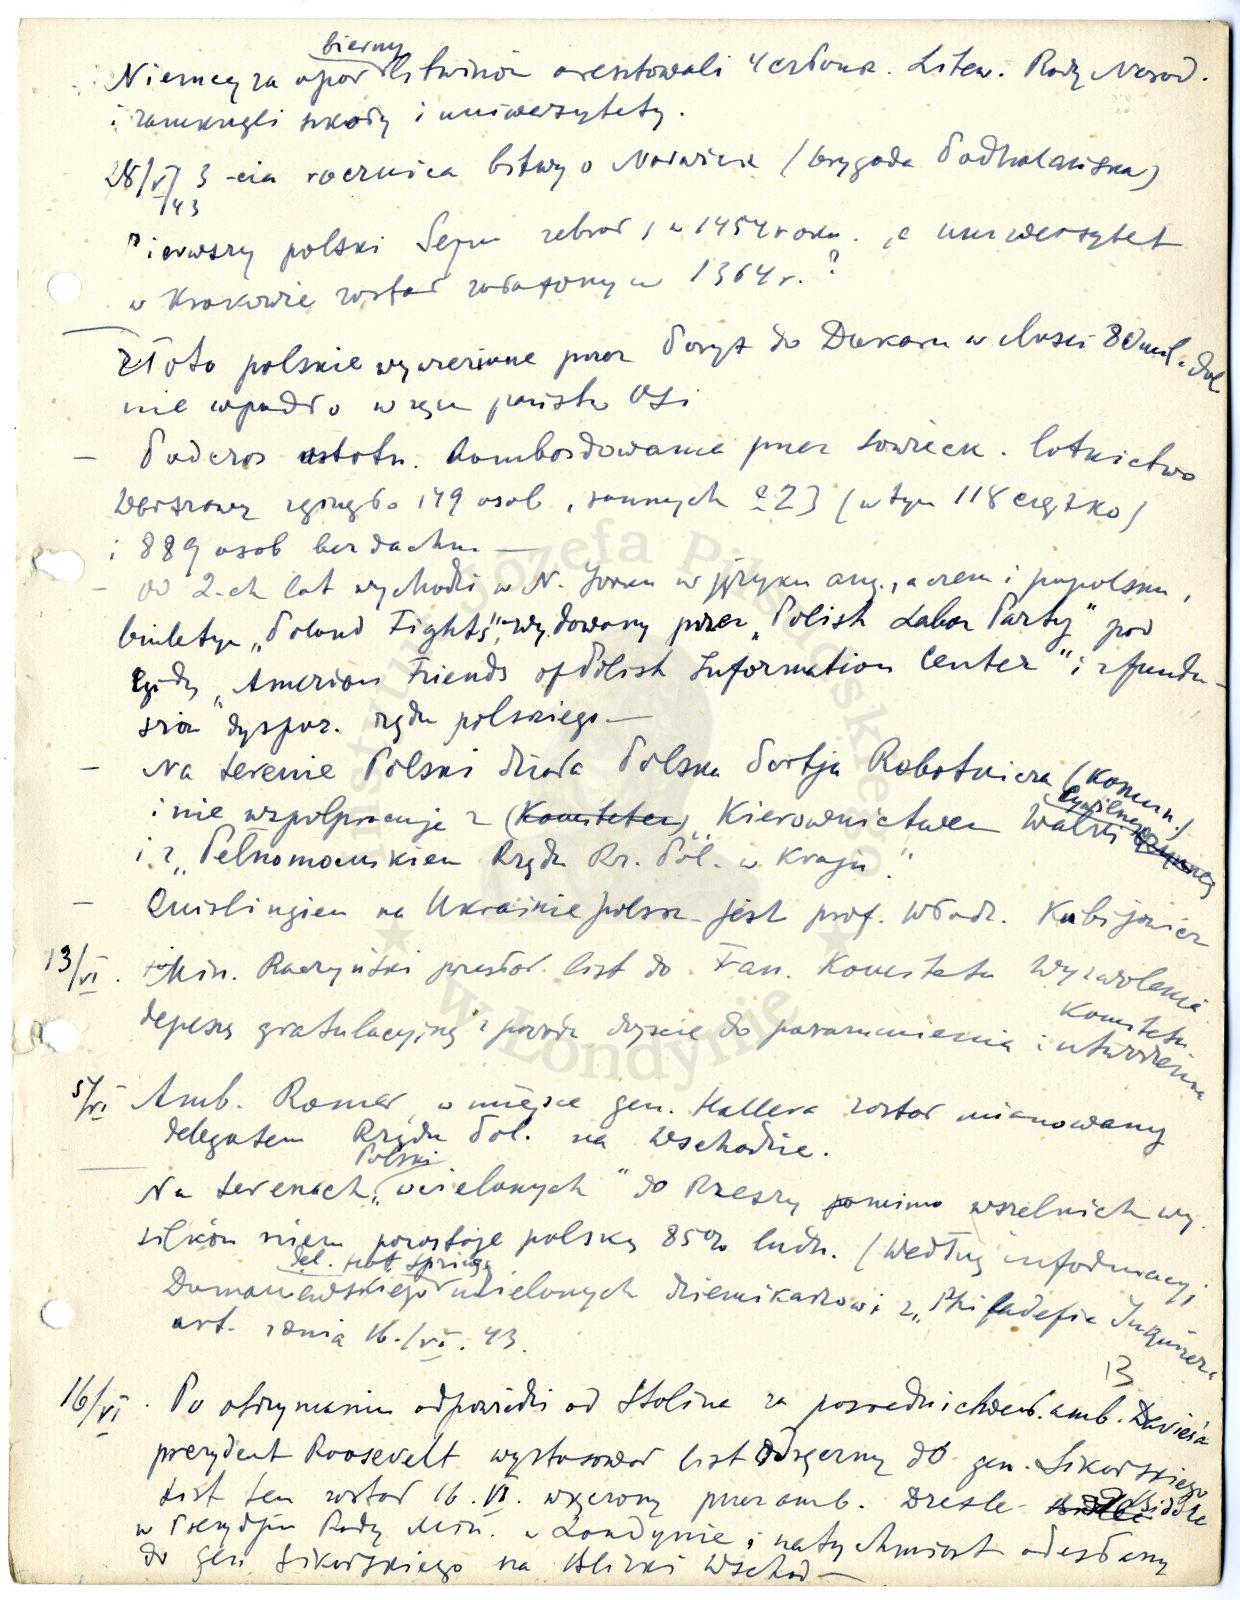 bierny
Niemcy za opór Litwinów aresztowali 4 członk. Litew. Rady Narod.
i zamknęli szkoły i uniwersytety.
28/V/43 3-cia rocznica bitwy o Narwick (brygada Podhalańska)
Pierwszy polski Sejm zebrał się w 1454 roku. , a uniwersytet
w Krakowie został założony w 1364 r. ?
Złoto polskie wywiezione przez Paryż do Dakaru w ilości 80 mil. dol
nie wpadło w ręce państw OSI
— Podczas ostatn. bombardowania przez sowieck. lotnictwo
Warszawy zginęło 149 osób, rannych 223 (w tym 118 ciężko)
i 889 osób bez dachu —
— Od 2-ch lat wychodzi w N. Yorku w języku ang., a czem i popolsku,
biuletyn „Poland Fights", wydawany przez „Polish Labor Party" pod
egidą „American Friends of Polish Information Center" i z fundu-
szów dyspoz. rządu polskiego —
— Na terenie Polski działa Polska Partja Robotnicza (Komun.)
i nie współpracuje z (Komitetem) „Kierownictwem Walki Cywilnej
i z „Pełnomocnikiem Rządu Rz. Pol. w Kraju".
— Quislingiem na Ukrainie polsk. jest prof. Włodz. Kubijowicz
13/VI. Min. Raczyński przesłał list do Fran. Komitetu Wyzwolenia
depeszę gratulacyjną z powodu dojścia do porozumienia i utworzenia
Komitetu
5/VI Amb. Romer, w miejsce gen. Hallera został mianowany
delegatem Rządu Pol. na Wschodzie.
Polski
Na terenach „wcielonych" do Rzeszy pomimo wszelkich wy.
siłków niem pozostaje polską 85% ludn. (Według informacyj
del. Hot Springs
Domaniewskiego udzielonych dziennikarzowi z „Philadefia Inquirera
art. z dnia 16./VI. 43.
13
16/VI. Po otrzymaniu odpowiedzi od Stalina za pośrednictwem. amb. Davies'a
prezydent Roosevelt wystosował list odręczny do gen. Sikorskiego
List ten został 16.VI. wręczony przez amb. Drexle- Biddle
w Prezydjum Rady Min. w Londynie i natychmiast odesłany
do gen Sikorskiego na Bliski Wschód —
Instytut Józefa Piłsudskiego
w Londynie